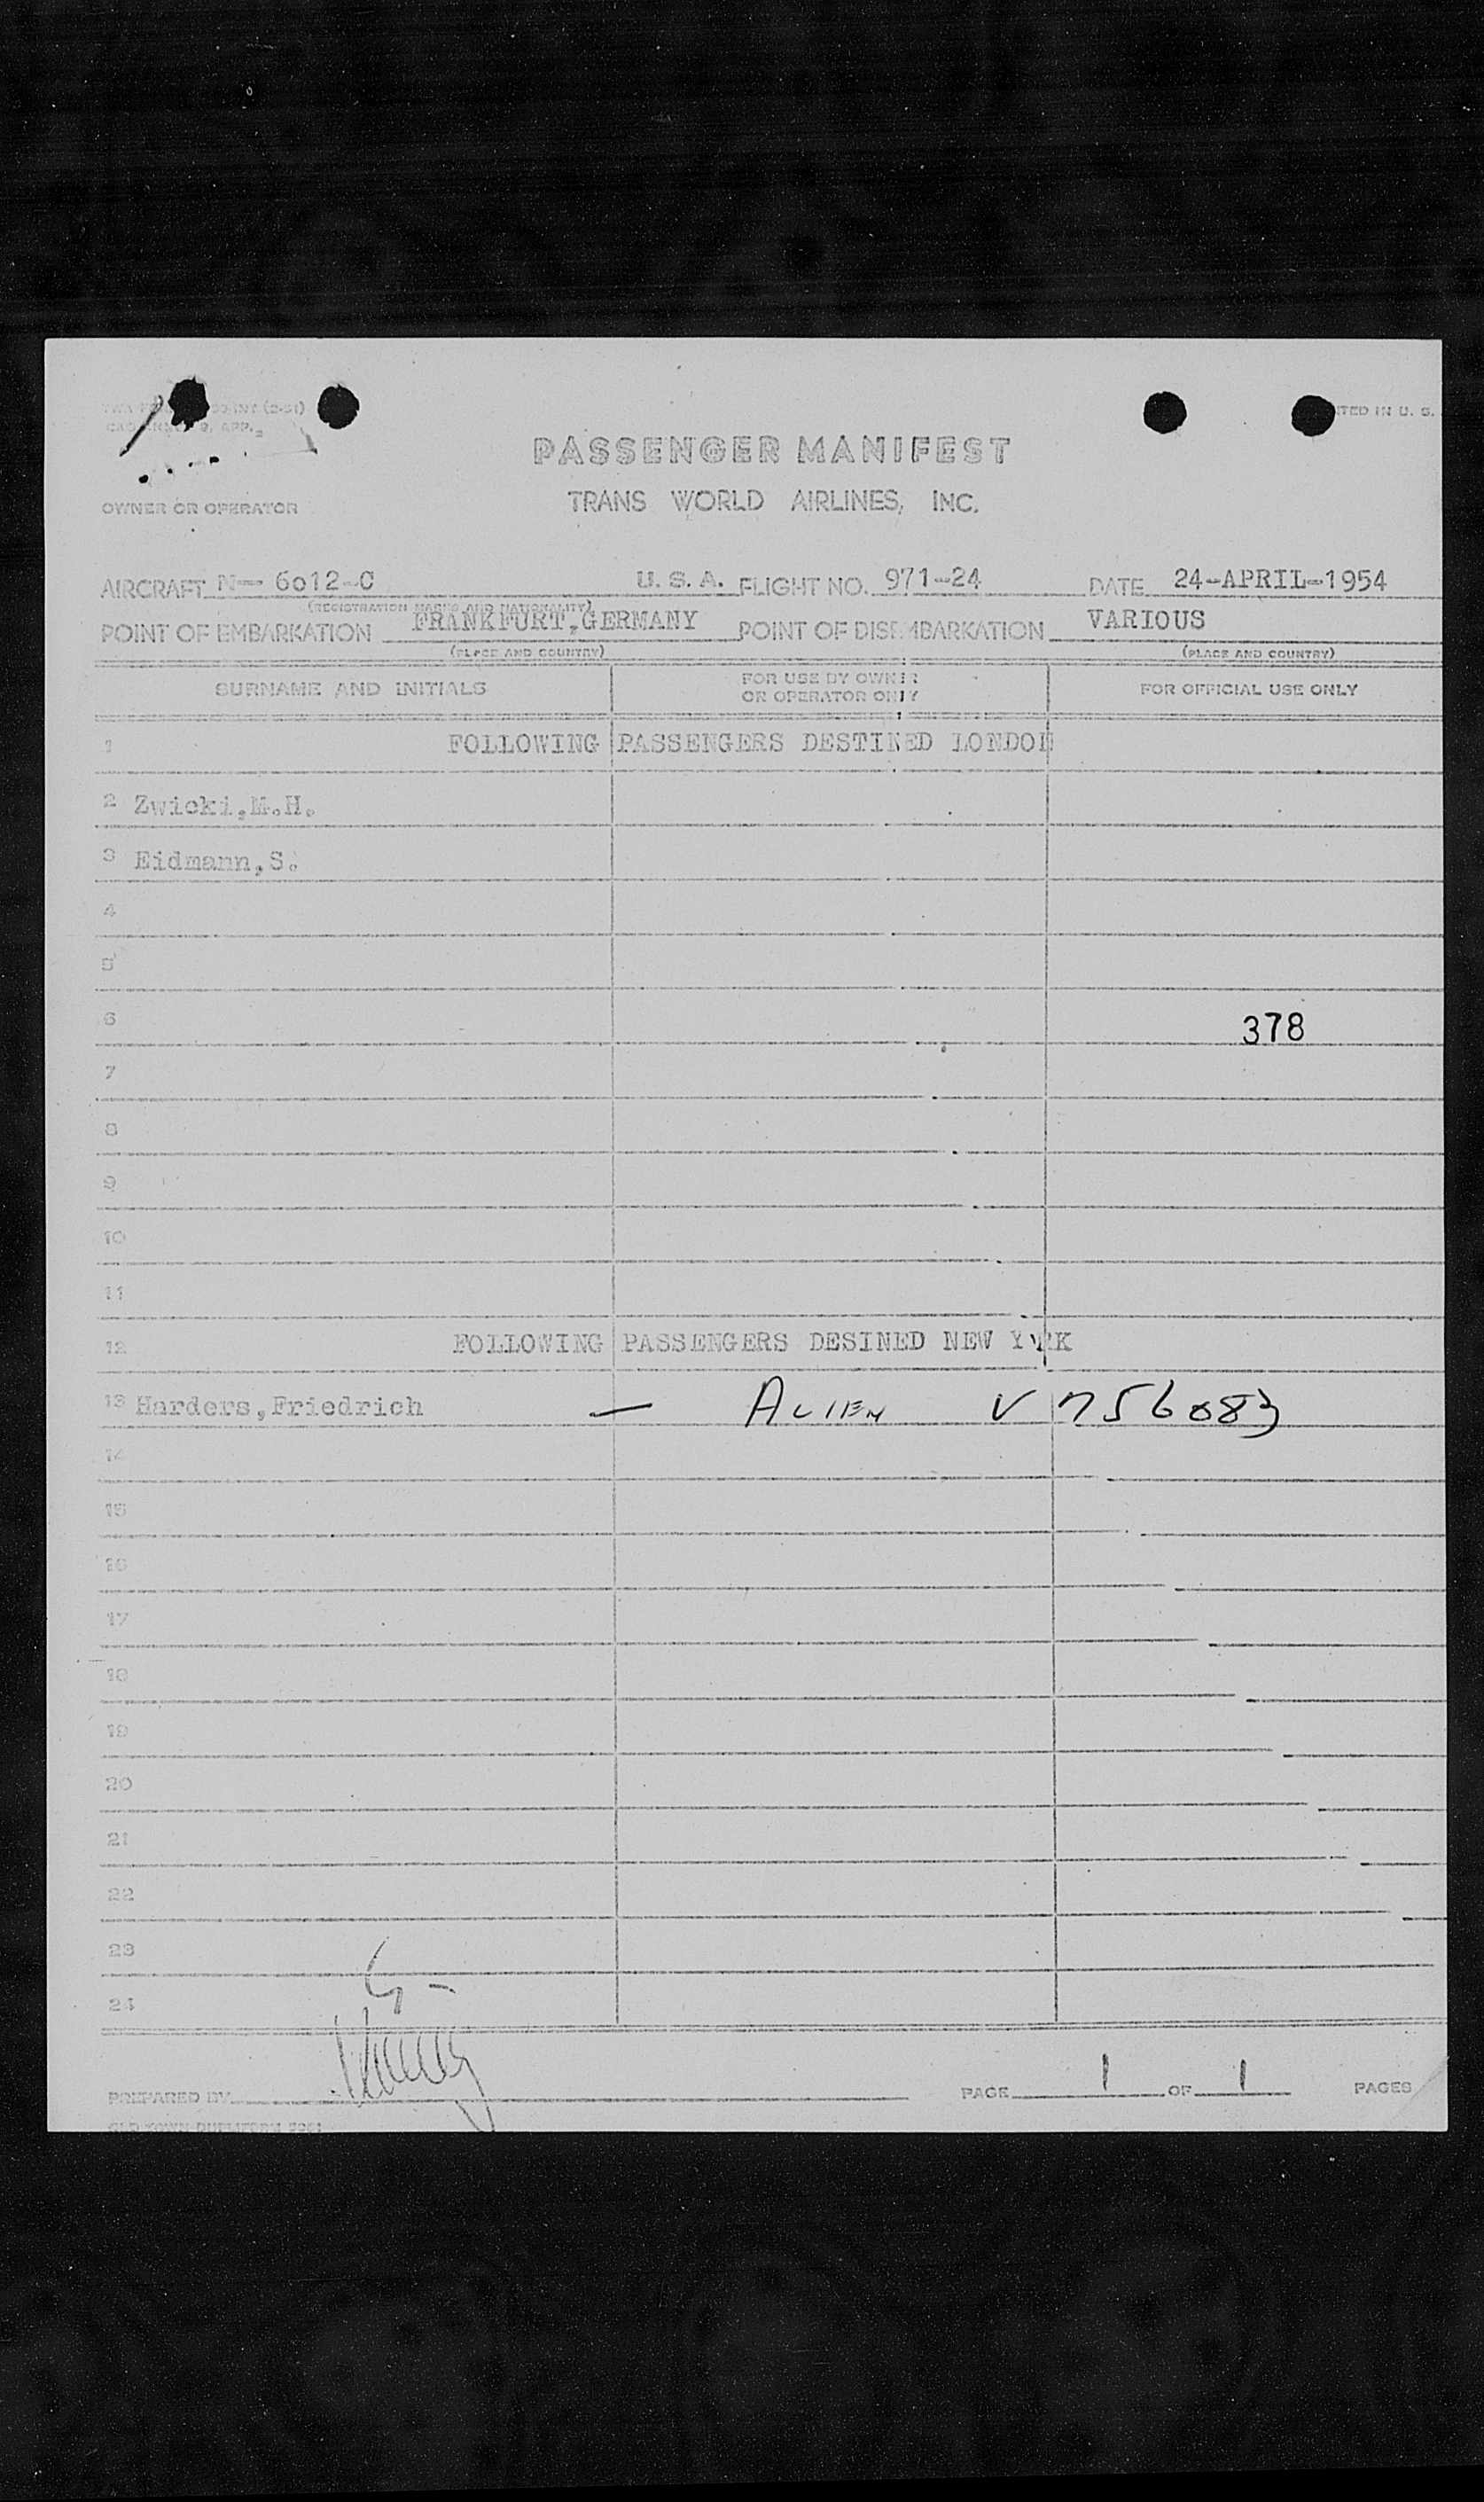 (2-51)
APP.
ITED IN U. S.
PASSENGER MANIFEST
OWNER OR OPERATOR
TRANS WORLD AIRLINES, INC.
AIRCRAFT N- 6012-C U.S.A. FLIGHT NO. 971-24 DATE 24-APRIL-1954
(REGISTRATION MARKS AND NATIONALITY)
POINT OF EMBARKATION FRANKFURT,GERMANY POINT OF DISEMBARKATION VARIOUS
(PLACE AND COUNTRY) (PLACE AND COUNTRY)
SURNAME AND INITIALS FOR USE BY OWNER OR OPERATOR ONLY FOR OFFICIAL USE ONLY
1 FOLLOWING PASSENGERS DESTINED LONDON
2 Zwicki,M.H.
3 Eidmann,S.
4
5
6 378
7
8
9
10
11
12 FOLLOWING PASSENGERS DESINED NEW YORK
13 Harders,Friedrich — ALIEN V 756083
14
15
16
17
18
19
20
21
22
23
24
PREPARED BY PAGE 1 OF 1 PAGES